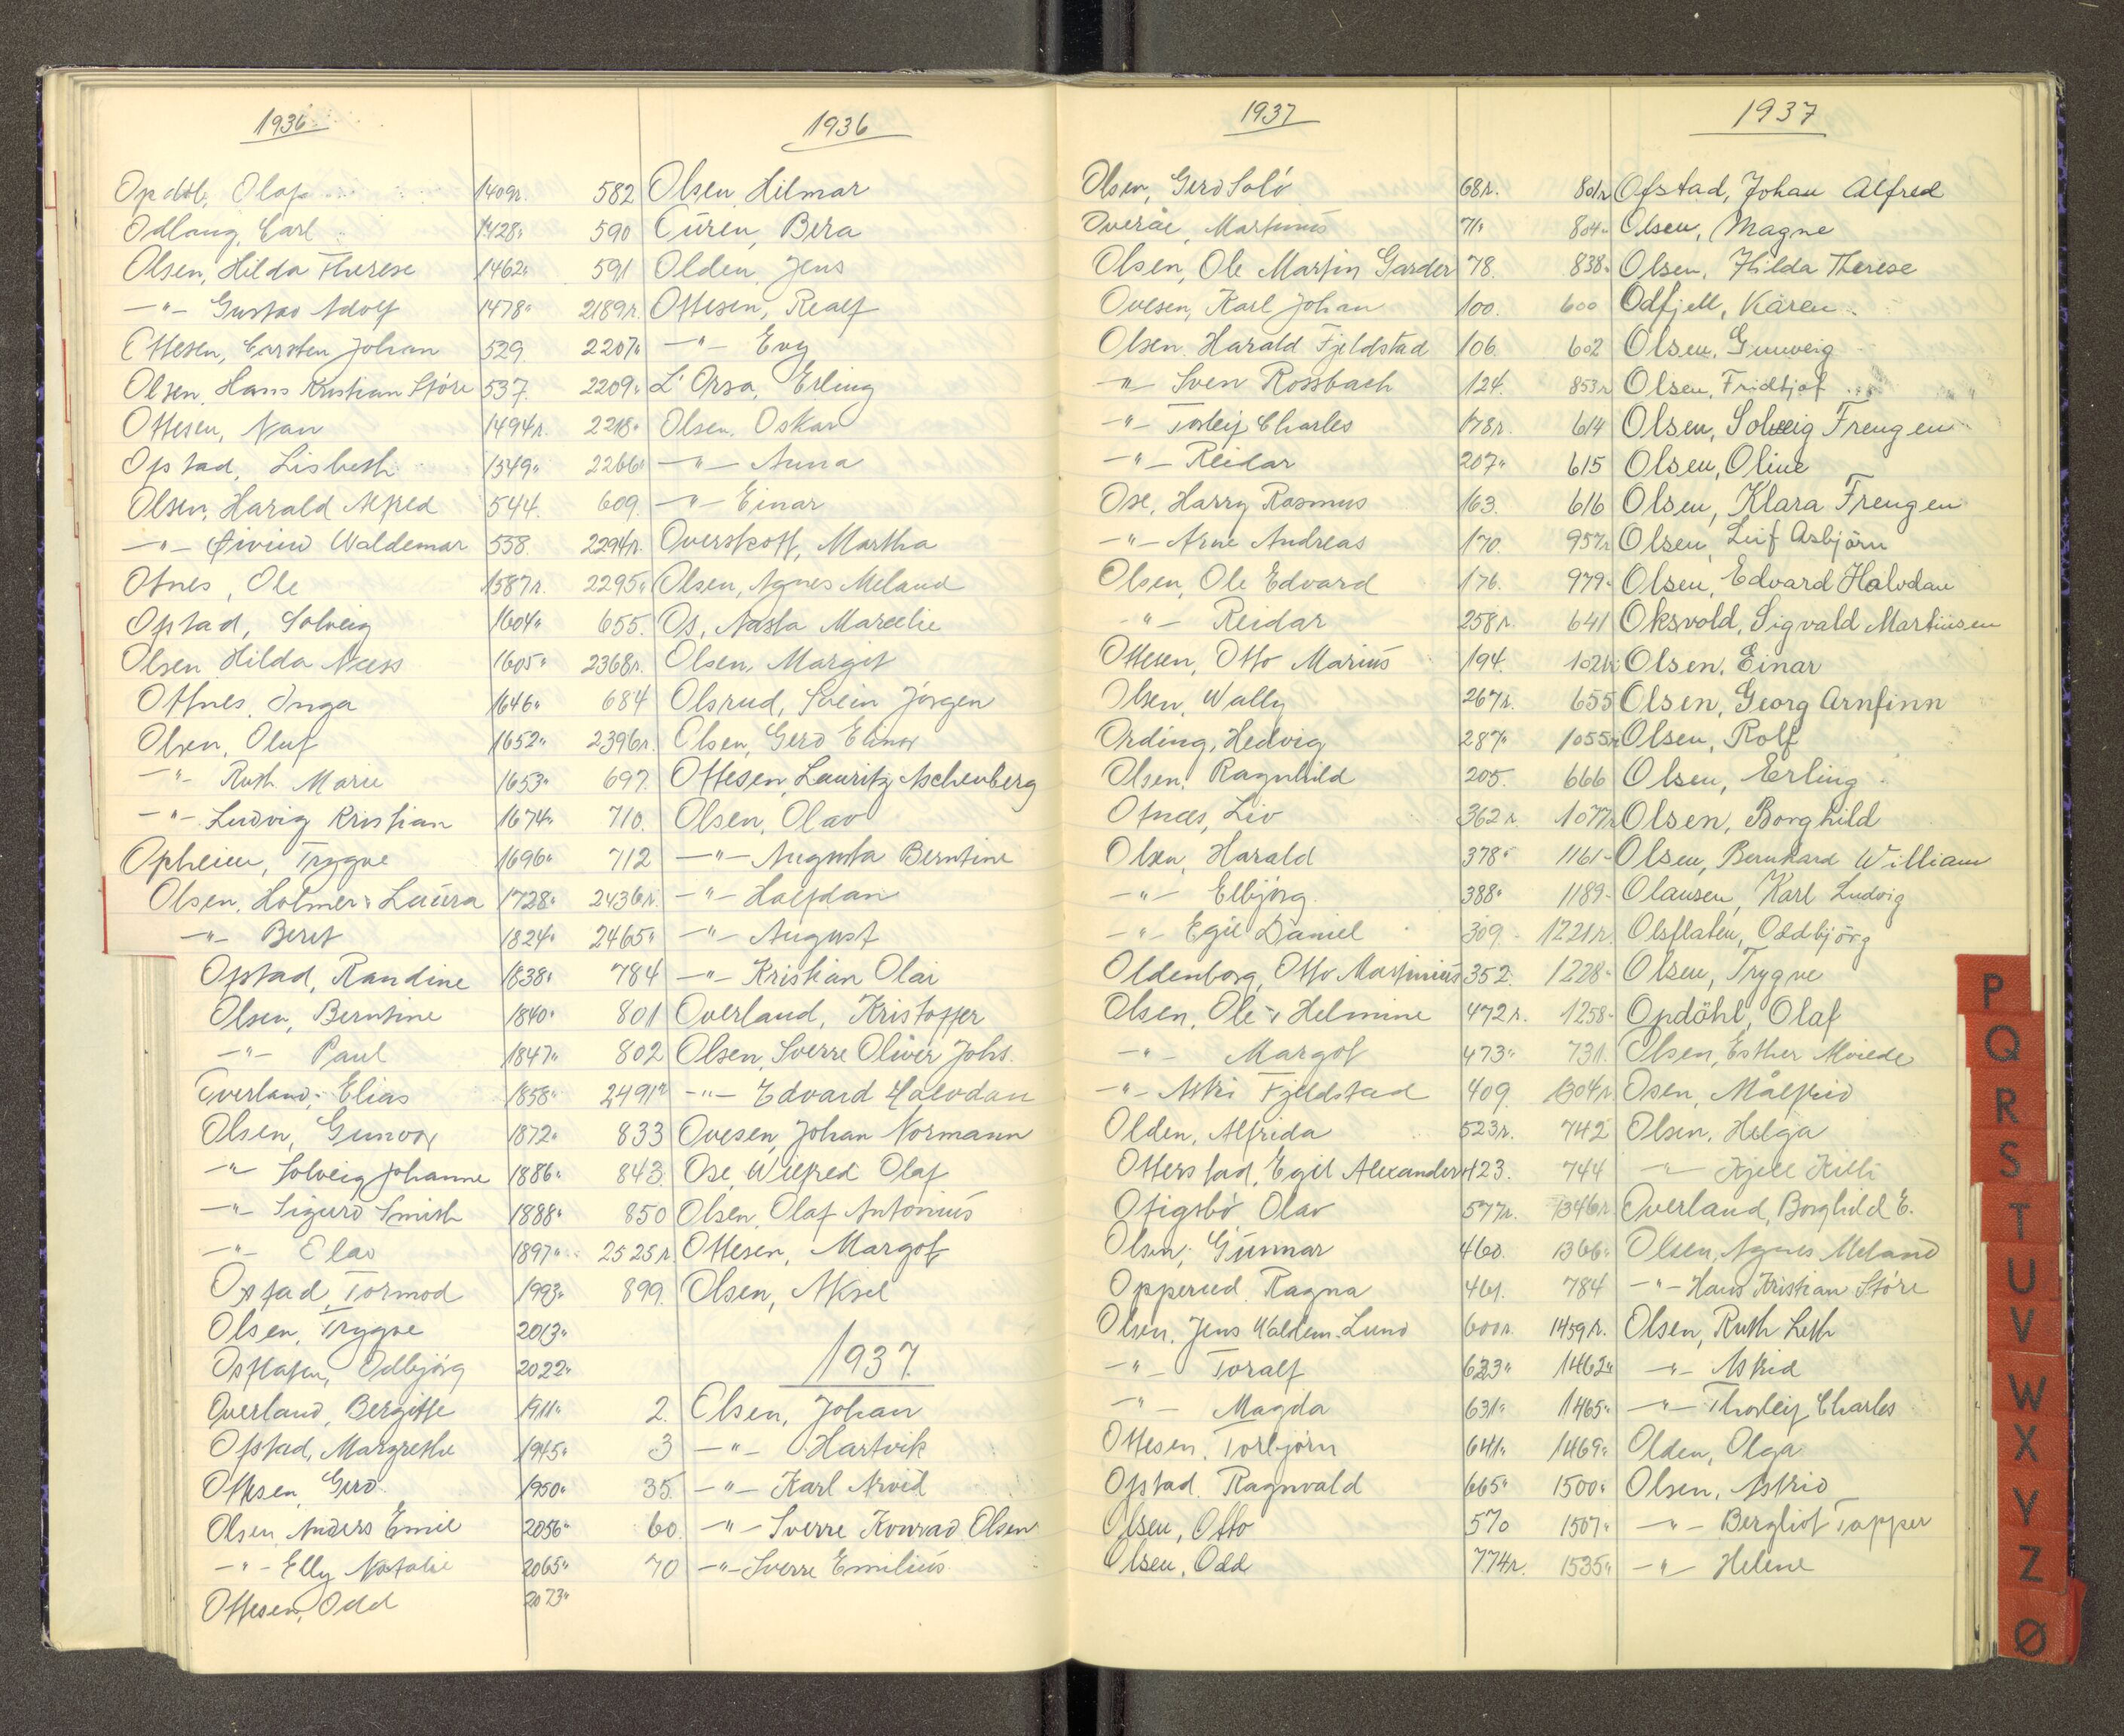 1936
Opdöl, Olaf 1409r.
Odlaug, Carl 1428"
Olsen, Hilda Therese 1462"
-"- Gustav Adolf 1478"
Ottesen, Carsten Johan 529.
Olsen, Hans Kristian Störe 537.
Ottesen, Nan 1494r.
Opstad, Lisbeth 1549"
Olsen, Harald Alfred 544.
-"- Øivind Waldemar 558.
Otnes, Ole 1587r.
Opstad, Solveig 1604"
Olsen Hilda Næss 1605"
Ottnes, Inga 1646"
Olsen, Oluf 1652"
-"- Ruth Marie 1653"
-"- Ludvig Kristian 1674"
Opheim, Trygve 1696"
Olsen, Holmer & Laura 1728"
-"- Berit 1824"
Opstad, Randine 1838"
Olsen, Berntine 1840"
-"- Paul 1847"
Overland, Elias 1858"
Olsen, Gunvor 1872"
-"- Solveig Johanne 1886"
-"- Sigurd Smith 1888"
-"- Olav 1897"
Opstad, Tormod 1993"
Olsen, Trygve 2013"
Osflaten, Odbjörg 2022"
Overland, Bergitte 1911"
Opstad, Margrethe 1945"
Ottesen, Gerd 1950"
Olsen, Anders Emil 2056"
-"- Elly Natalie 2065"
Ottesen, Odd 2073"
1936
582 Olsen, Hilmar
590 Ouren, Bera
591 Olden, Jens
2189r. Ottesen, Realf
2207" -"- Evy
2209" L'Orsa, Erling
2218" Olsen, Oskar
2266" -"- Anna
609. -"- Einar
2294r. Overskott, Martha
2295" Olsen, Agnes Meland
655. Os, Nasta Marelie
2368r. Olsen, Margit
684 Olsrud, Svein Jörgen
2396r. Olsen, Gerd Elinor
697. Ottesen, Lauritz Aschenberg
710. Olsen, Olav
712 -"- Augusta Berntine
2436r. -"- Halfdan
2465" -"- August
784 -"- Kristian Olai
801 Overland, Kristoffer
802 Olsen, Sverre Oliver Johs.
2491r -"- Edvard Halvdan
833 Ovesen, Johan Normann
843. Ose, Wilfred Olaf
850 Olsen, Olaf Antonius
2525r. Ottesen, Margot
899. Olsen, Aksel
1937.
2. Olsen, Johan
3 -"- Hartvik
35. -"- Karl Arvid
60. -"- Sverre Konrad Olsen
70 -"- Sverre Emilius
1937
Olsen, Gerd Solö 68r.
Overåe, Martinus 71"
Olsen, Ole Martin Garder 78.
Ovesen, Karl Johan 100.
Olsen, Harald Fjeldstad 106.
-"- Sven Rossbach 124.
-"- Torleif Charles 178r.
-"- Reidar 207"
Ose, Harry Rasmus 163.
-"- Arne Andreas 170.
Olsen, Ole Edvard 176.
-"- Reidar 258r.
Ottesen, Otto Marius 194.
Olsen, Wally 267r.
Ording, Hedvig 287"
Olsen, Ragnhild 205.
Otnæs, Liv 362r.
Olsen, Harald 378"
-"- Elbjörg 388"
-"- Egil Daniel 309.
Oldenborg, Otto Martinius 352.
Olsen, Ole & Helmine 472r.
-"- Margot 473"
-"- Astri Fjeldstad 409.
Olden, Alfrida 523r.
Otterstad, Egil Alexander 423.
Otigsbö Olav 577r.
Olsen, Gunnar 460.
Opperud, Ragna 461.
Olsen, Jens Waldem. Lund 600r.
-"- Toralf 623"
-"- Magda 631"
Ottesen, Torbjörn 641"
Opstad, Ragnvald 665"
Olsen, Otto 570
Olsen, Odd 774r.
1937
801r Ofstad, Johan Alfred
804" Olsen, Magne
838" Olsen, Hilda Therese
600 Odfjell, Karen
602 Olsen, Gunveig
853r Olsen, Fridtjof
614 Olsen, Solveig Frengen
615 Olsen, Oline
616 Olsen, Klara Frengen
957r Olsen, Leif Asbjörn
979" Olsen, Edvard Halvdan
641 Oksvold, Sigvald Martinsen
1021r Olsen, Einar
655 Olsen, Georg Arnfinn
1055r Olsen, Rolf
666 Olsen, Erling
1077r Olsen, Borghild
1161" Olsen, Bernhard William
1189" Olausen, Karl Ludvig
1221r. Olsflaten, Oddbjörg
1228" Olsen, Trygve
1258" Opdöhl, Olaf
731. Olsen, Esther
1304r. Osen, Målfrid
742 Olsen, Helga
744 -"- Kjell Killi
1346r. Overland, Borghild E.
1366" Olsen, Agnes Meland
784 -"- Hans Kristian Störe
1459r. Olsen, Ruth Leth
1462" -"- Astrid
1465" -"- Thorleif Charles
1469" Olden, Olga
1500" Olsen, Astrid
1507" -"- Bergliot Tapper
1535" -"- Helene
P
Q
R
S
T
U
V
W
X
Y
Z
Ø